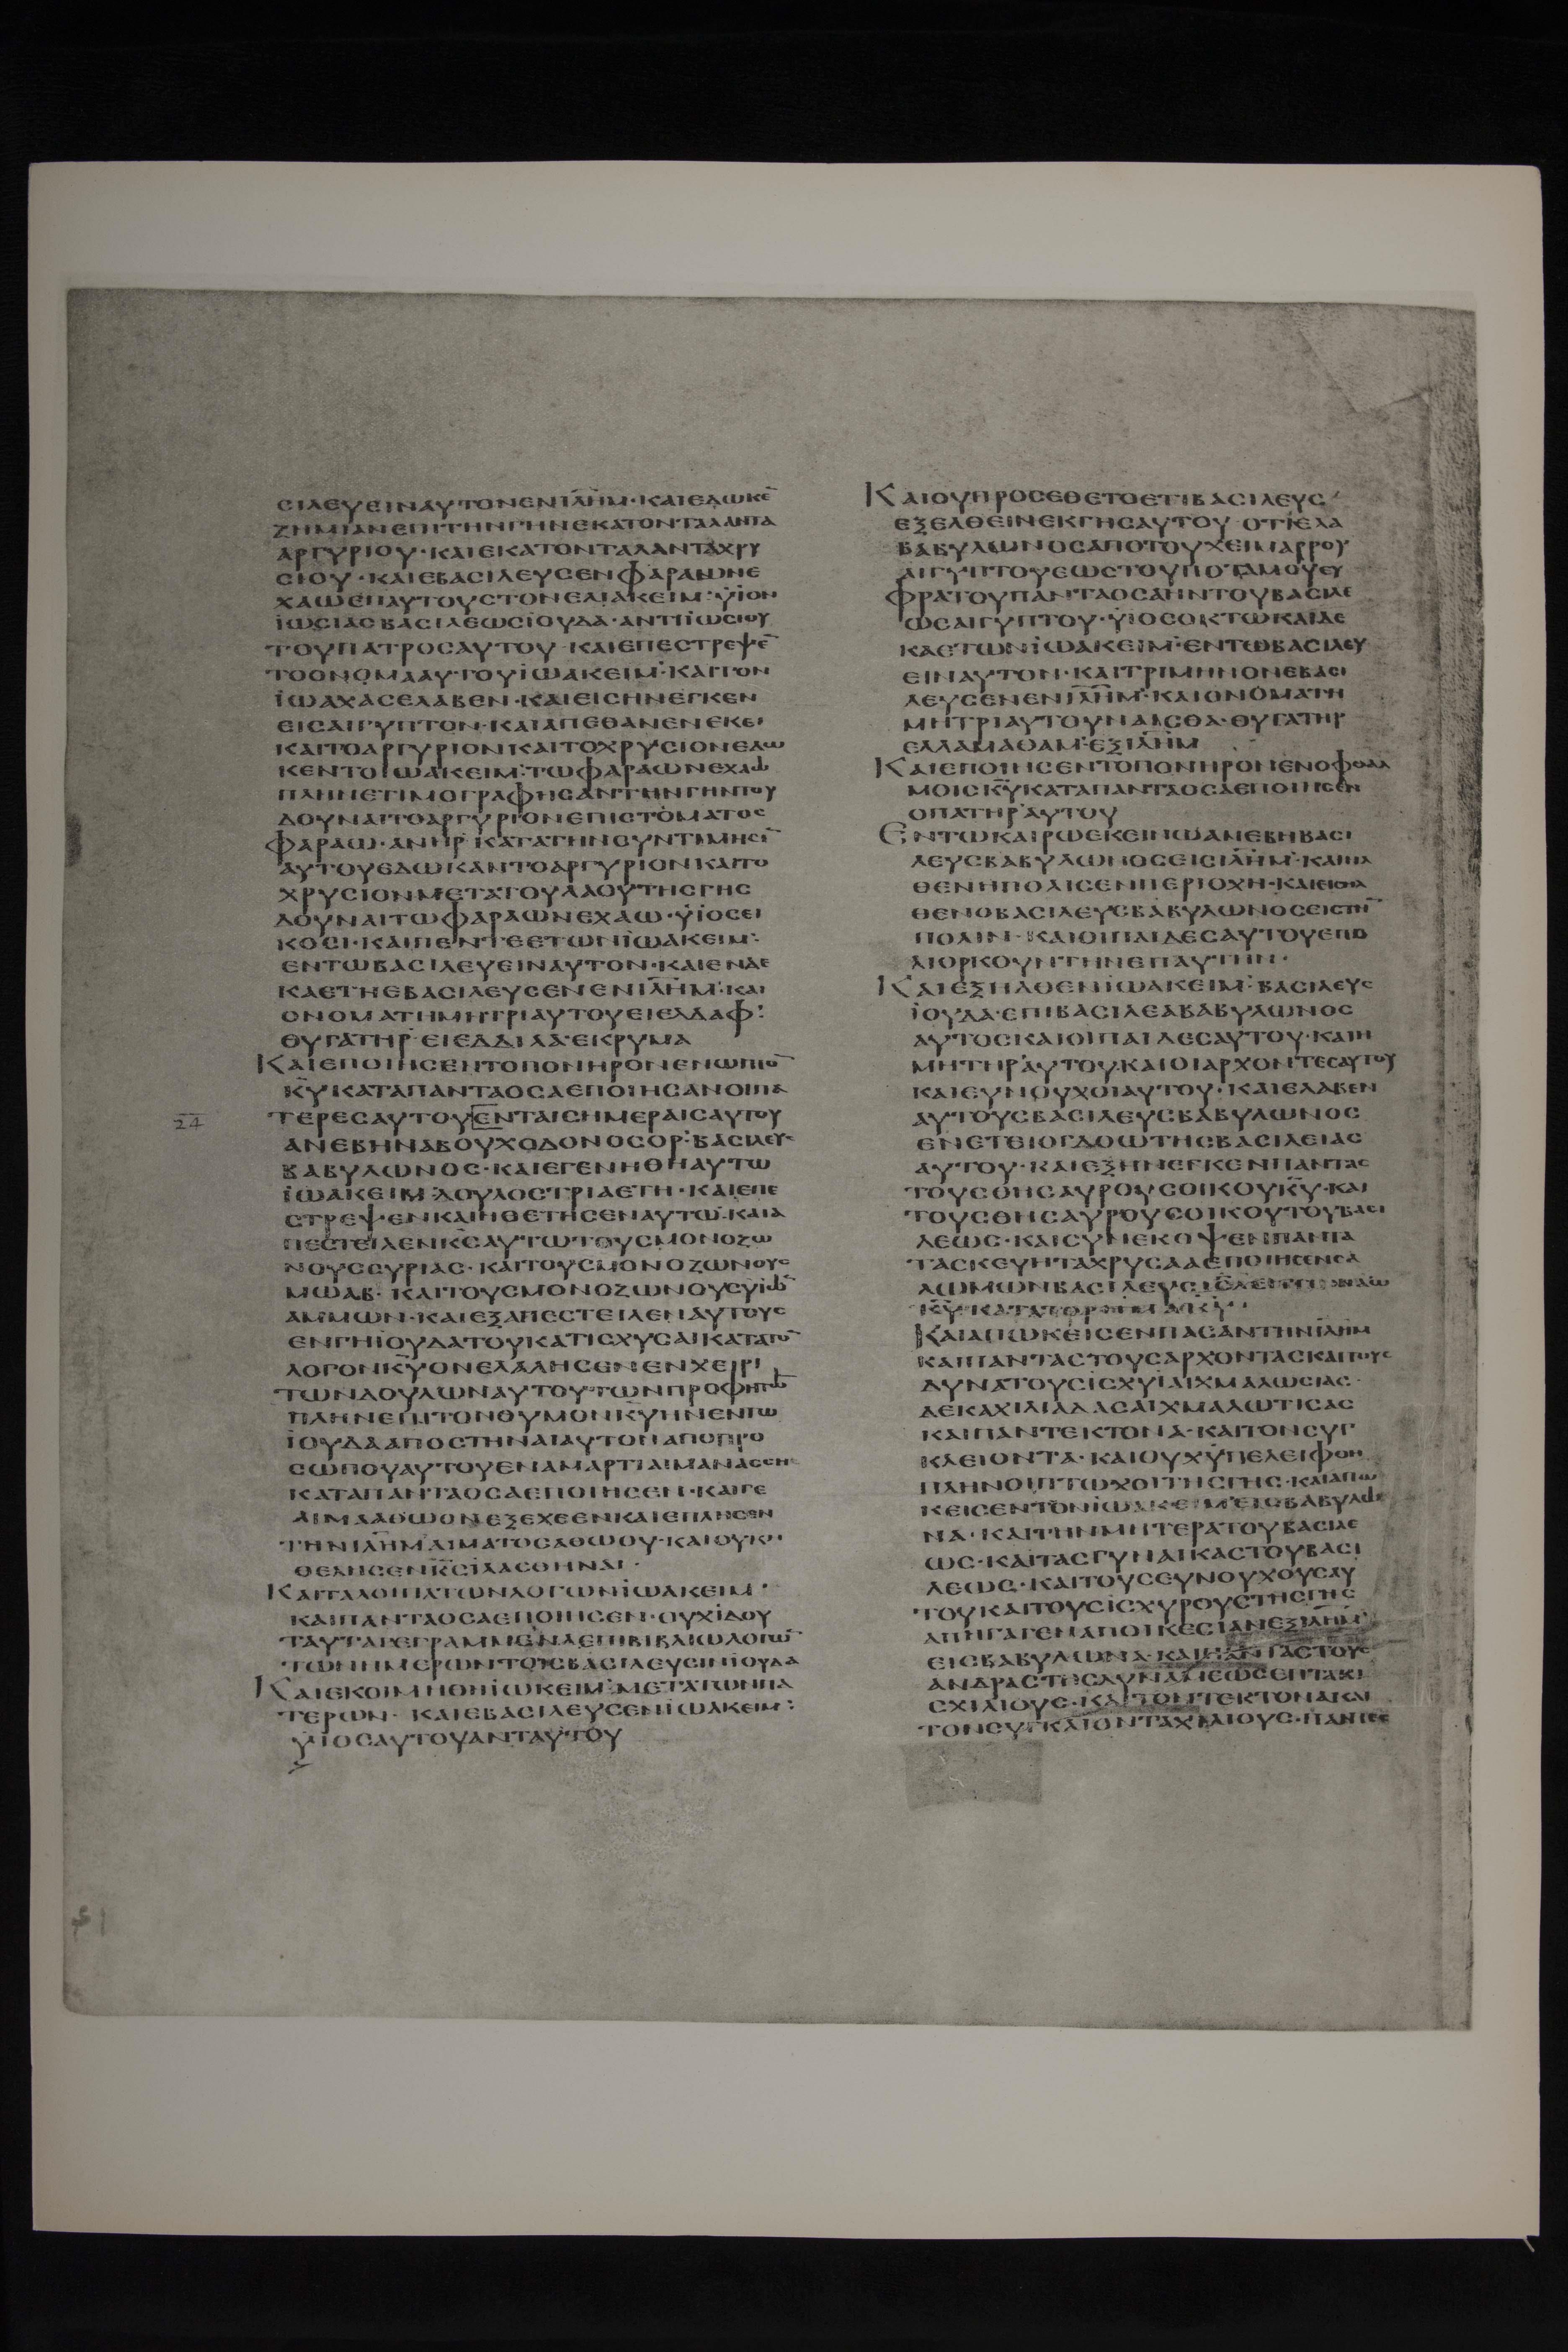 ϹΙΛΕΥΕΙΝΑΥΤΟΝΕΝΙΛΗΜ·ΚΑΙΕΔΩΚΕ̅
ΖΗΜΙΑΝΕΠΙΤΗΝΓΗΝΕΚΑΤΟΝΤΑΛΑΝΤΑ
ΑΡΓΥΡΙΟΥ·ΚΑΙΕΚΑΤΟΝΤΑΛΑΝΤΑΧΡΥ
ϹΙΟΥ·ΚΑΙΕΒΑϹΙΛΕΥϹΕΝΦΑΡΑΩΝΕ
ΧΑΩΕΠΑΥΤΟΥϹΤΟΝΕΛΙΑΚΕΙΜ·ΫΙΟΝ
ΪΩϹΙΑϹΒΑϹΙΛΕΩϹΙΟΥΔΑ·ΑΝΤΙΪΩϹΙΟΥ
ΤΟΥΠΑΤΡΟϹΑΥΤΟΥ·ΚΑΙΕΠΕϹΤΡΕΨΕ̅
ΤΟΟΝΟΜΑΑΥΤΟΥΪΩΑΚΕΙΜ·ΚΑΙΤΟΝ
ΪΩΑΧΑϹΕΛΑΒΕΝ·ΚΑΙΕΙϹΗΝΕΓΚΕΝ
ΕΙϹΑΙΓΥΠΤΟΝ·ΚΑΙΑΠΕΘΑΝΕΝΕΚΕΙ
ΚΑΙΤΟΑΡΓΥΡΙΟΝΚΑΙΤΟΧΡΥϹΙΟΝΕΔΩ
ΚΕΝΤΟΙΩΑΚΕΙΜ:ΤΩΦΑΡΑΩΝΕΧΑΩ
ΠΛΗΝΕΤΙΜΟΓΡΑΦΗϹΑΝΤΗΝΓΗΝΤΟΥ
ΔΟΥΝΑΙΤΟΑΡΓΥΡΙΟΝΕΠΙϹΤΟΜΑΤΟϹ
ΦΑΡΑΩ·ΑΝΗΡΚΑΤΑΤΗΝϹΥΝΤΙΜΗϹΙ̅
ΑΥΤΟΥΕΔΩΚΑΝΤΟΑΡΓΥΡΙΟΝΚΑΙΤΟ
ΧΡΥϹΙΟΝΜΕΤΑΤΟΥΛΑΟΥΤΗϹΓΗϹ
ΔΟΥΝΑΙΤΩΦΑΡΑΩΝΕΧΑΩ·ΫΙΟϹΕΙ
ΚΟϹΙ·ΚΑΙΠΕΝΤΕΕΤΩΝΪΩΑΚΕΙΜ:
ΕΝΤΩΒΑϹΙΛΕΥΕΙΝΑΥΤΟΝ·ΚΑΙΕΝΔΕ
ΚΑΕΤΗΕΒΑϹΙΛΕΥϹΕΝΕΝΙΛΗΜ:ΚΑΙ
ΟΝΟΜΑΤΗΜΗΤΡΙΑΥΤΟΥΕΙΕΛΔΑΦ:
ΘΥΓΑΤΗΡΕΙΕΔΔΙΛΑ·ΕΚΡΥΜΑ
ΚΑΙΕΠΟΙΗϹΕΝΤΟΠΟΝΗΡΟΝΕΝΩΠΙΟ̅
Κ̅Υ̅ΚΑΤΑΠΑΝΤΑΟϹΑΕΠΟΙΗϹΑΝΟΙΠΑ
24 ΤΕΡΕϹΑΥΤΟΥΕΝΤΑΙϹΗΜΕΡΑΙϹΑΥΤΟΥ
ΑΝΕΒΗΝΑΒΟΥΧΟΔΟΝΟϹΟΡ:ΒΑϹΙΛΕΥϹ
ΒΑΒΥΛΩΝΟϹ·ΚΑΙΕΓΕΝΗΘΗΑΥΤΩ
ΪΩΑΚΕΙΜ·ΔΟΥΛΟϹΤΡΙΑΕΤΗ·ΚΑΙΕΠΕ
ϹΤΡΕΨΕΝΚΑΙΗΘΕΤΗϹΕΝΑΥΤΩ·ΚΑΙΑ
ΠΕϹΤΕΙΛΕΝΚ̅Ϲ̅ΑΥΤΩΤΟΥϹΜΟΝΟΖΩ
ΝΟΥϹϹΥΡΙΑϹ·ΚΑΙΤΟΥϹΜΟΝΟΖΩΝΟΥϹ
ΜΩΑΒ·ΚΑΙΤΟΥϹΜΟΝΟΖΩΝΟΥϹΥΪΩ̅
ΑΜΜΩΝ·ΚΑΙΕΞΑΠΕϹΤΕΙΛΕΝΑΥΤΟΥϹ
ΕΝΓΗΪΟΥΔΑΤΟΥΚΑΤΙϹΧΥϹΑΙΚΑΤΑΤΟ̅
ΛΟΓΟΝΚ̅Υ̅ΟΝΕΛΑΛΗϹΕΝΕΝΧΕΙΡΙ
ΤΩΝΔΟΥΛΩΝΑΥΤΟΥΤΩΝΠΡΟΦΗΤΩ̅
ΠΛΗΝΕΠΙΤΟΝΘΥΜΟΝΚ̅Υ̅ΗΝΕΝΤΩ
ΪΟΥΔΑΑΠΟϹΤΗΝΑΙΑΥΤΟΝΑΠΟΠΡΟ
ϹΩΠΟΥΑΥΤΟΥΕΝΑΜΑΡΤΙΑΙΜΑΝΑϹϹΗ
ΚΑΤΑΠΑΝΤΑΟϹΑΕΠΟΙΗϹΕΝ·ΚΑΙΓΕ
ΑΙΜΑΑΘΩΟΝΕΞΕΧΕΕΝΚΑΙΕΠΛΗϹΕΝ
ΤΗΝΙΛΗΜΑΙΜΑΤΟϹΑΘΩΟΥ·ΚΑΙΟΥΚΗ
ΘΕΛΗϹΕΝΚ̅Ϲ̅ΪΛΑϹΘΗΝΑΙ·
ΚΑΙΤΑΛΟΙΠΑΤΩΝΛΟΓΩΝΪΩΑΚΕΙΜ·
ΚΑΙΠΑΝΤΑΟϹΑΕΠΟΙΗϹΕΝ·ΟΥΧΙΔΟΥ
ΤΑΥΤΑΓΕΓΡΑΜΜΕΝΑΕΠΙΒΙΒΛΙΩΛΟΓΩ̅
ΤΩΝΗΜΕΡΩΝΤΟΙϹΒΑϹΙΛΕΥϹΙΝΪΟΥΔΑ
ΚΑΙΕΚΟΙΜΗΘΗΪΩΚΕΙΜ·ΜΕΤΑΤΩΝΠΑ
ΤΕΡΩΝ·ΚΑΙΕΒΑϹΙΛΕΥϹΕΝΪΩΑΚΕΙΜ:
ΫΙΟϹΑΥΤΟΥΑΝΤΑΥΤΟΥ
ΚΑΙΟΥΠΡΟϹΕΘΕΤΟΕΤΙΒΑϹΙΛΕΥϹ
ΕΞΕΛΘΕΙΝΕΚΓΗϹΑΥΤΟΥ·ΟΤΙΕΛΑ
ΒΑΒΥΛΩΝΟϹΑΠΟΤΟΥΧΕΙΜΑΡΡΟΥ
ΑΙΓΥΠΤΟΥΕΩϹΤΟΥΠΟΤΑΜΟΥΕΥ
ΦΡΑΤΟΥΠΑΝΤΑΟϹΑΗΝΤΟΥΒΑϹΙΛΕ
ΩϹΑΙΓΥΠΤΟΥ·ΫΙΟϹΟΚΤΩΚΑΙΔΕ
ΚΑΕΤΩΝΪΩΑΚΕΙΜ·ΕΝΤΩΒΑϹΙΛΕΥ
ΕΙΝΑΥΤΟΝ·ΚΑΙΤΡΙΜΗΝΟΝΕΒΑϹΙ
ΛΕΥϹΕΝΕΝΙΛΗΜ·ΚΑΙΟΝΟΜΑΤΗ
ΜΗΤΡΙΑΥΤΟΥΝΑΙϹΘΑ·ΘΥΓΑΤΗΡ
ΕΛΛΑΜΑΘΑΜ·ΕΞΙΛΗΜ
ΚΑΙΕΠΟΙΗϹΕΝΤΟΠΟΝΗΡΟΝΕΝΟΦΘΑΛ
ΜΟΙϹΚ̅Υ̅ΚΑΤΑΠΑΝΤΑΟϹΑΕΠΟΙΗϹΕΝ
ΟΠΑΤΗΡΑΥΤΟΥ
ΕΝΤΩΚΑΙΡΩΕΚΕΙΝΩΑΝΕΒΗΒΑϹΙ
ΛΕΥϹΒΑΒΥΛΩΝΟϹΕΙϹΙΛΗΜ·ΚΑΙΗΛ
ΘΕΝΗΠΟΛΙϹΕΝΠΕΡΙΟΧΗ·ΚΑΙΕΙϹΗΛ
ΘΕΝΟΒΑϹΙΛΕΥϹΒΑΒΥΛΩΝΟϹΕΙϹΤΗ̅
ΠΟΛΙΝ·ΚΑΙΟΙΠΑΙΔΕϹΑΥΤΟΥΕΠΟ
ΛΙΟΡΚΟΥΝΤΗΝΕΠΑΥΤΗΝ·
ΚΑΙΕΞΗΛΘΕΝΪΩΑΚΕΙΜ·ΒΑϹΙΛΕΥϹ
ΪΟΥΔΑ·ΕΠΙΒΑϹΙΛΕΑΒΑΒΥΛΩΝΟϹ
ΑΥΤΟϹΚΑΙΟΙΠΑΙΔΕϹΑΥΤΟΥ·ΚΑΙΗ
ΜΗΤΗΡΑΥΤΟΥΚΑΙΟΙΑΡΧΟΝΤΕϹΑΥΤΟΥ
ΚΑΙΕΥΝΟΥΧΟΙΑΥΤΟΥ·ΚΑΙΕΛΑΒΕΝ
ΑΥΤΟΥϹΒΑϹΙΛΕΥϹΒΑΒΥΛΩΝΟϹ
ΕΝΕΤΕΙΟΓΔΟΩΤΗϹΒΑϹΙΛΕΙΑϹ
ΑΥΤΟΥ·ΚΑΙΕΞΗΝΕΓΚΕΝΠΑΝΤΑϹ
ΤΟΥϹΘΗϹΑΥΡΟΥϹΟΙΚΟΥΚ̅Υ̅·ΚΑΙ
ΤΟΥϹΘΗϹΑΥΡΟΥϹΟΙΚΟΥΤΟΥΒΑϹΙ
ΛΕΩϹ·ΚΑΙϹΥΝΕΚΟΨΕΝΠΑΝΤΑ
ΤΑϹΚΕΥΗΤΑΧΡΥϹΑΑΕΠΟΙΗϹΕΝϹΑ
ΛΩΜΩΝΒΑϹΙΛΕΥϹ
ΚΑΙΑΠΩΚΕΙϹΕΝΠΑϹΑΝΤΗΝΙΛΗΜ
ΚΑΙΠΑΝΤΑϹΤΟΥϹΑΡΧΟΝΤΑϹΚΑΙΤΟΥϹ
ΔΥΝΑΤΟΥϹΙϹΧΥΙΑΙΧΜΑΛΩϹΙΑϹ·
ΔΕΚΑΧΙΛΙΑΔΑϹΑΙΧΜΑΛΩΤΙϹΑϹ
ΚΑΙΠΑΝΤΕΚΤΟΝΑ·ΚΑΙΤΟΝϹΥΓ
ΚΛΕΙΟΝΤΑ·ΚΑΙΟΥΧΫΠΕΛΕΙΦΘΗ
ΠΛΗΝΟΙΠΤΩΧΟΙΤΗϹΓΗϹ·ΚΑΙΑΠΩ
ΚΕΙϹΕΝΤΟΝΪΩΑΚΕΙΜΕΙϹΒΑΒΥΛΩ
ΝΑ·ΚΑΙΤΗΝΜΗΤΕΡΑΤΟΥΒΑϹΙΛΕ
ΩϹ·ΚΑΙΤΑϹΓΥΝΑΙΚΑϹΤΟΥΒΑϹΙ
ΛΕΩϹ·ΚΑΙΤΟΥϹΕΥΝΟΥΧΟΥϹΑΥ
ΤΟΥΚΑΙΤΟΥϹΙϹΧΥΡΟΥϹΤΗϹΓΗϹ
ΑΠΗΓΑΓΕΝΑΠΟΙΚΕϹΙΑΝΕΞΙΛΗΜ
ΕΙϹΒΑΒΥΛΩΝΑ·ΚΑΙΠΑΝΤΑϹΤΟΥϹ
ΑΝΔΡΑϹΤΗϹΔΥΝΑΜΕΩϹΕΠΤΑΚΙ
ϹΧΙΛΙΟΥϹ·ΚΑΙΤΟΝΤΕΚΤΟΝΑΚΑΙ
ΤΟΝϹΥΓΚΛΙΟΝΤΑΧΙΛΙΟΥϹ·ΠΑΝΤΕϹ